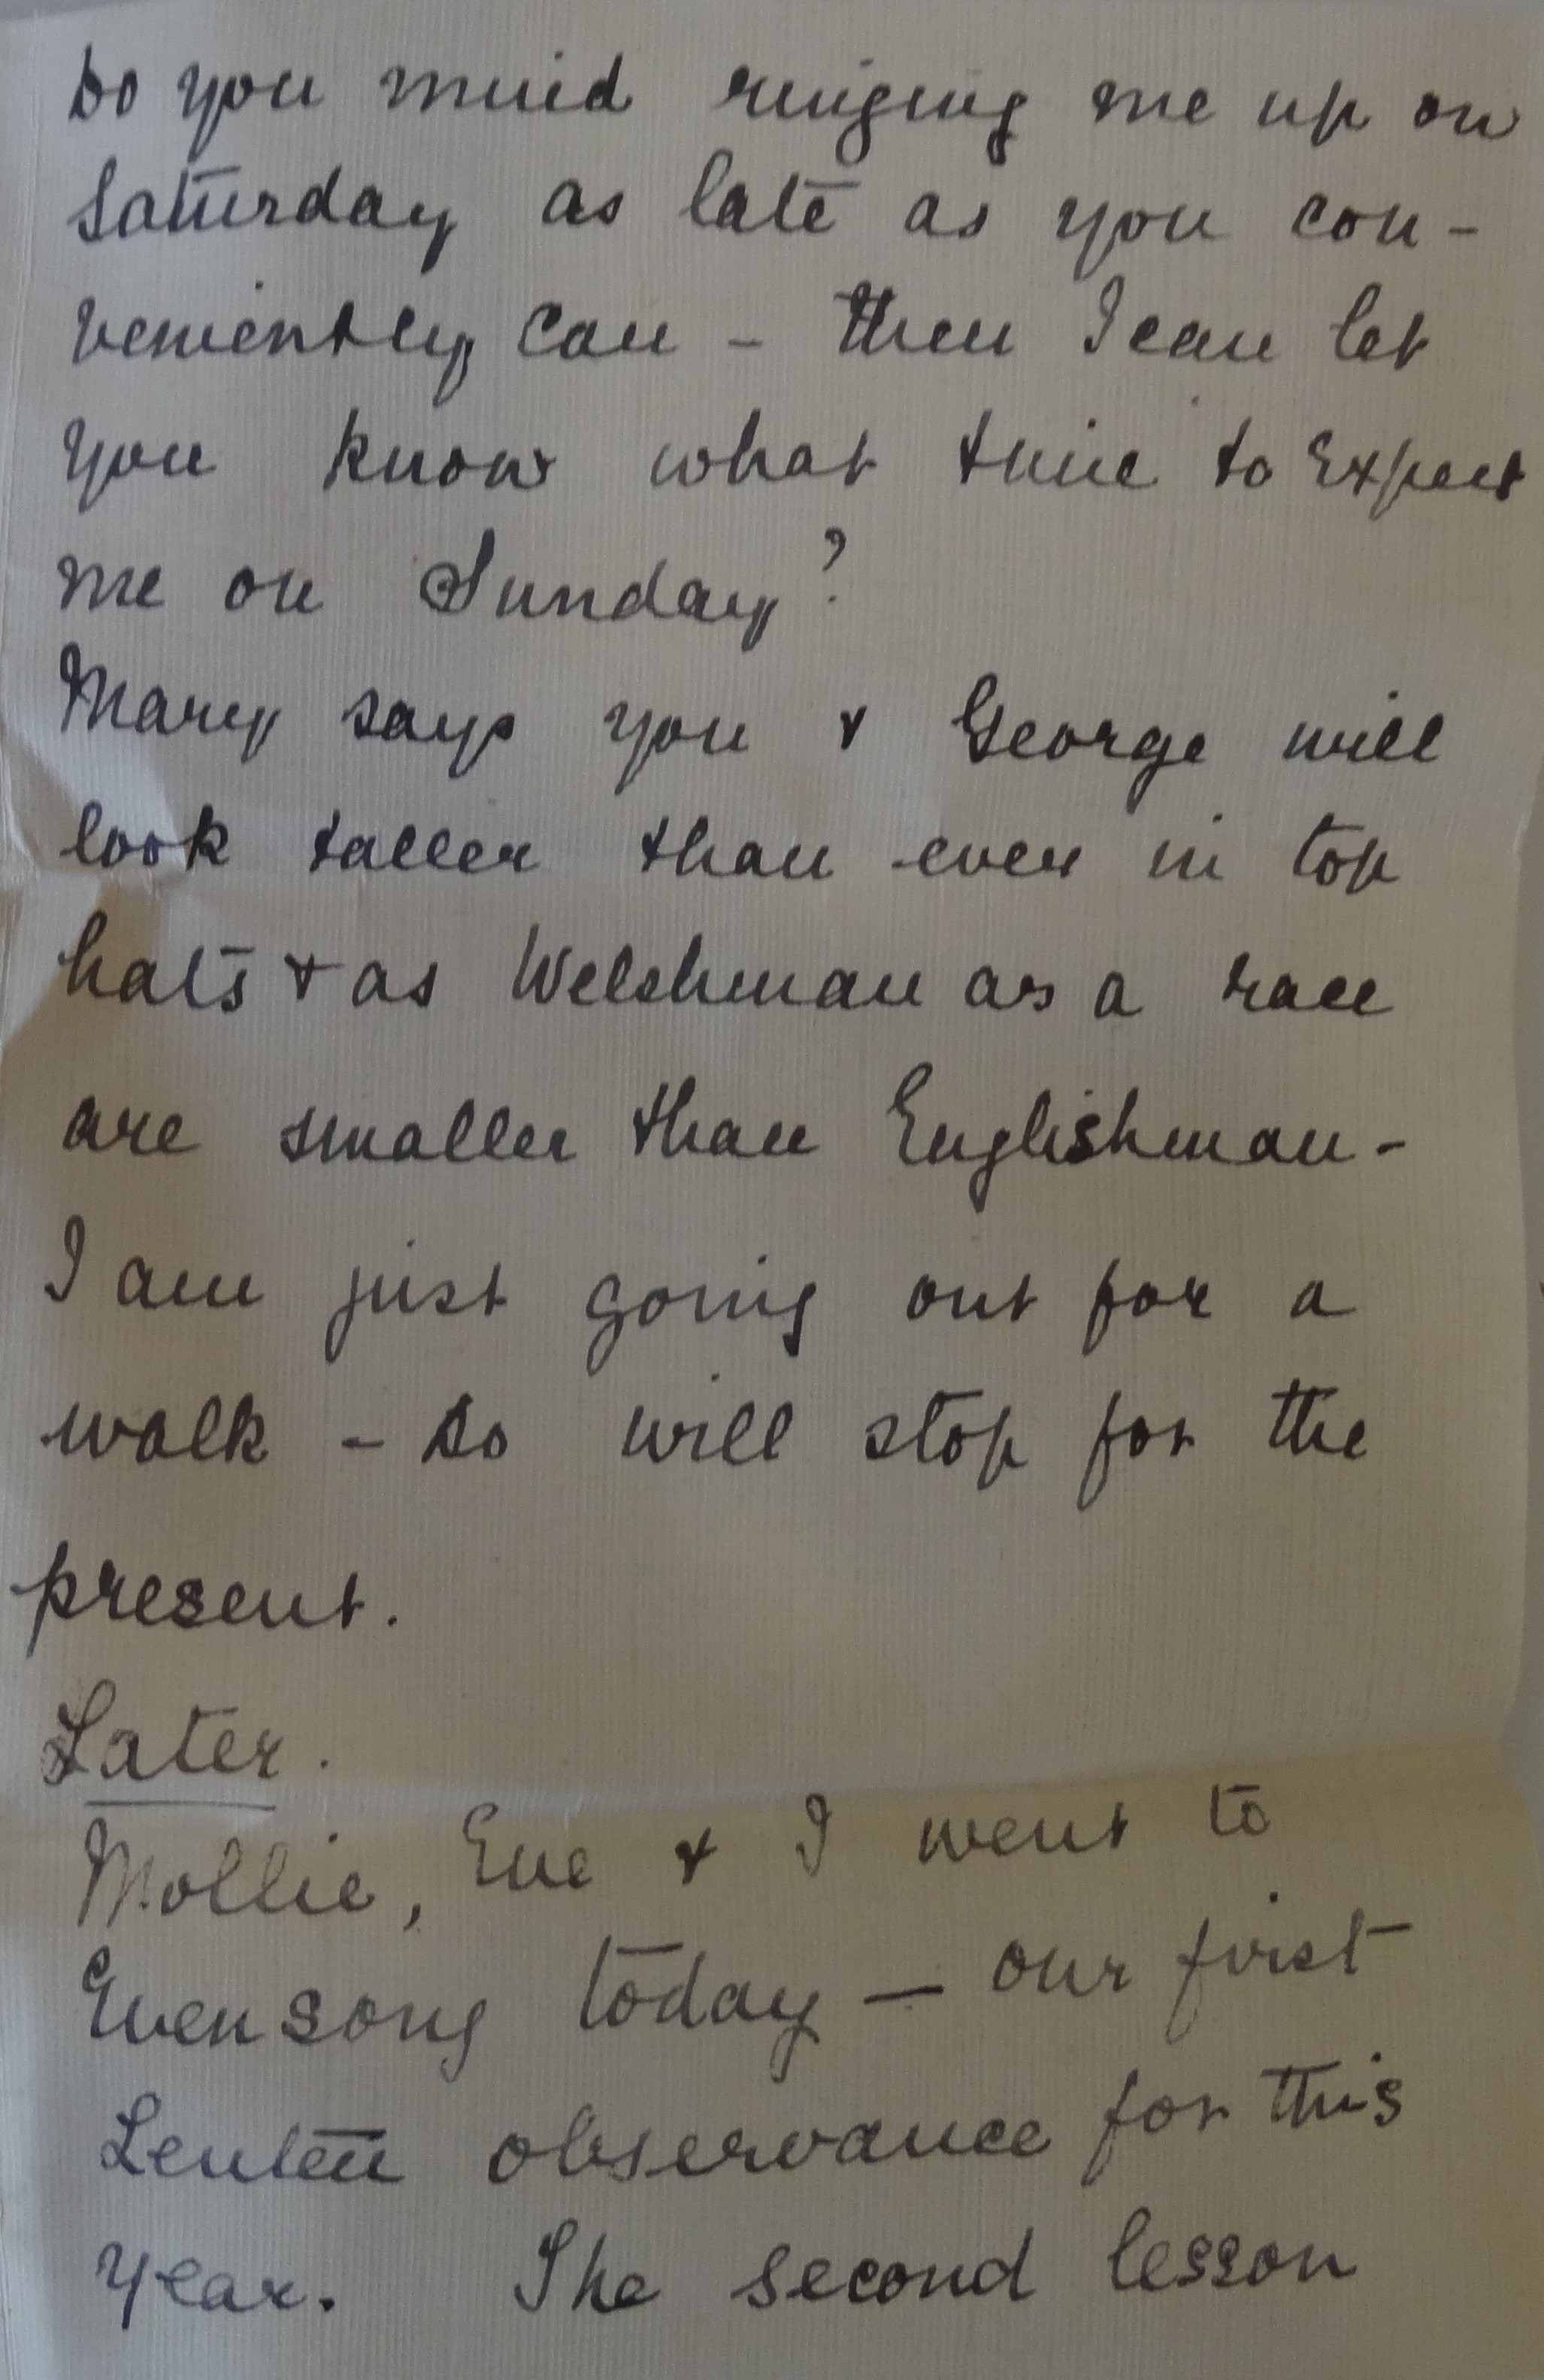 Do you mind ringing me up on
Saturday as late as you con-
veniently can - then I can let
you know what time to expect
me on Sunday?
Mary says you & George will
look taller than ever in top
hats & as Welshman as a race
are smaller than Englishman -
I am just going out for a
walk - so will stop for the
present.
Later.
Mollie, Eve & I went to
Evensong today - our first
Lenten observance for this
year. The second lesson